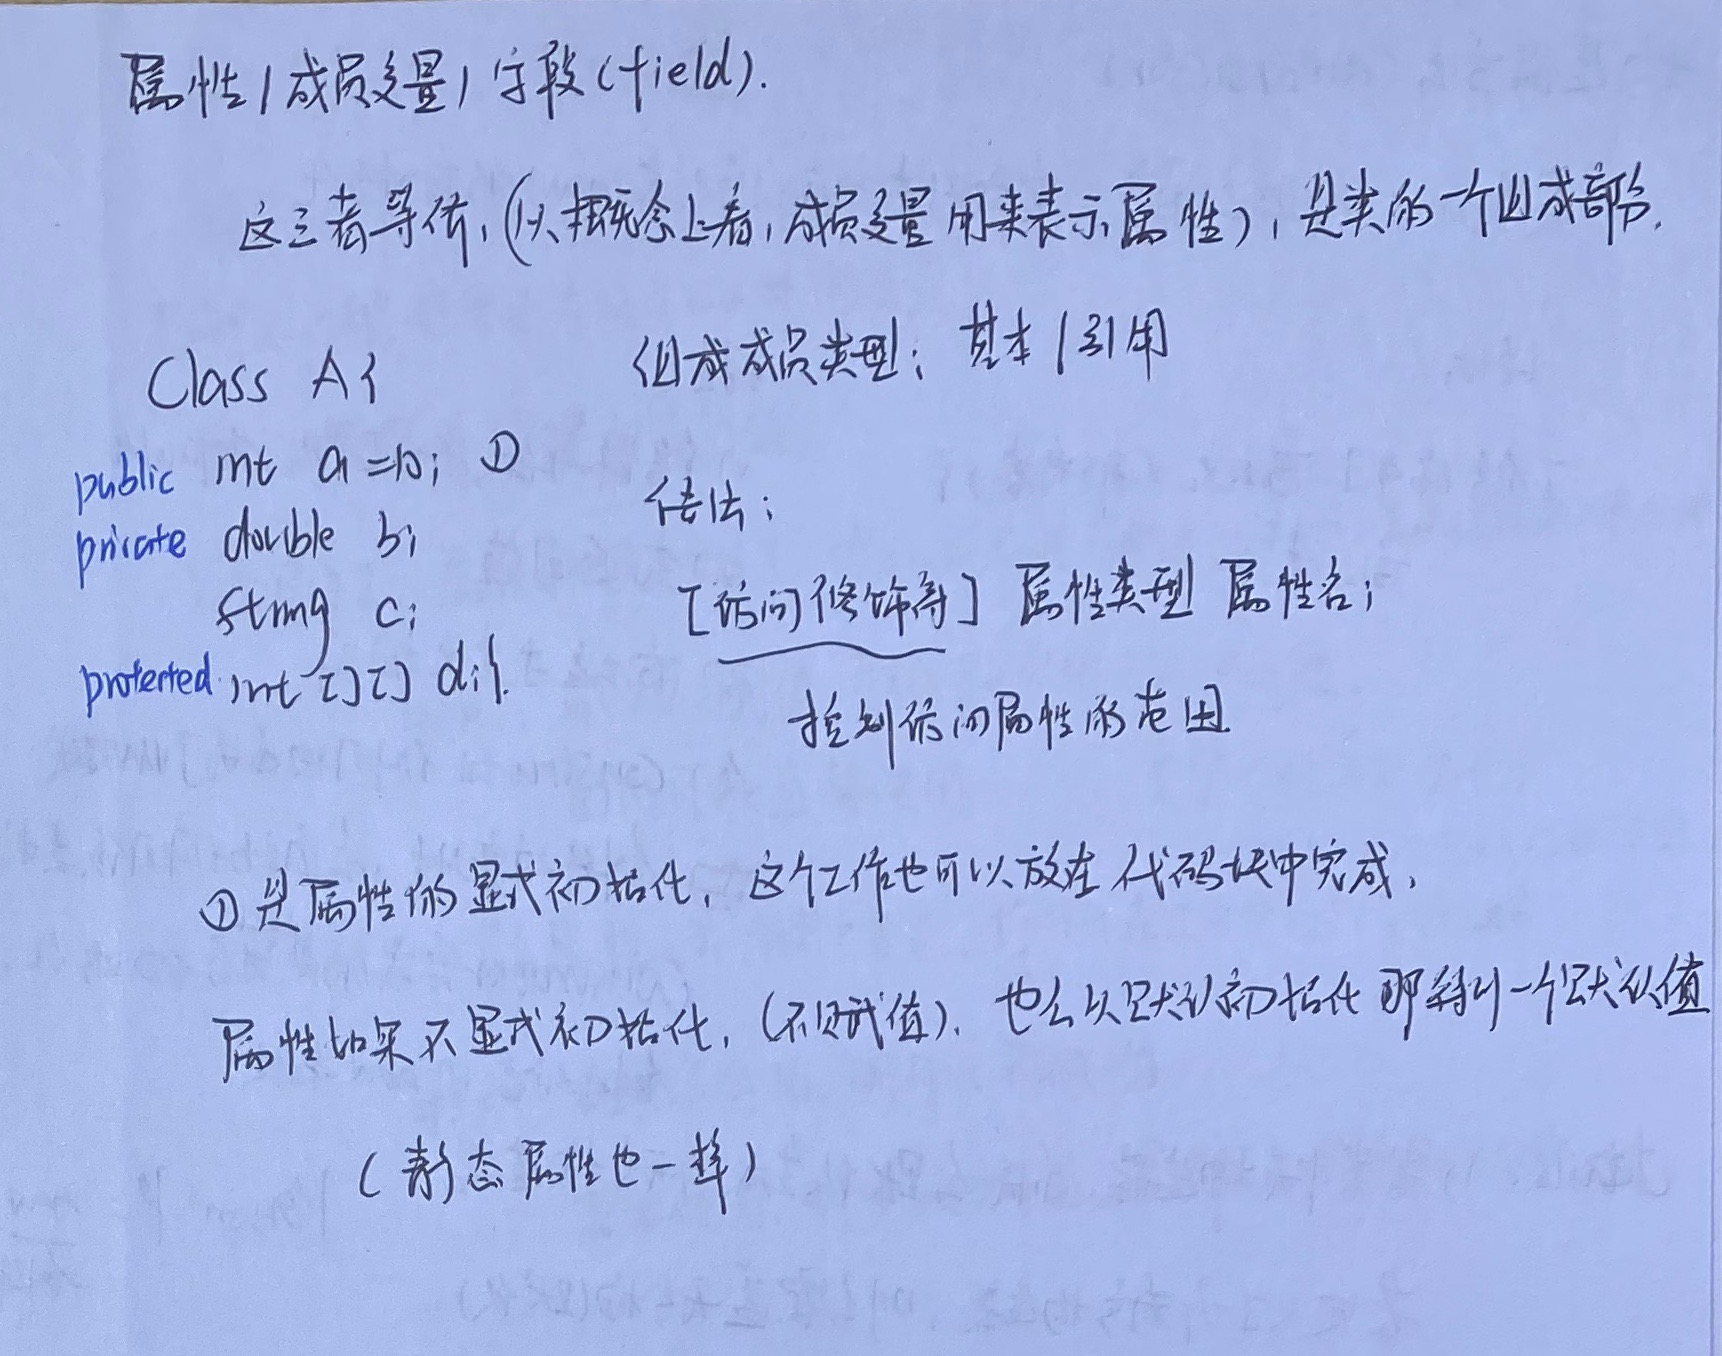 属性 / 成员变量 / 字段 (field).
这三者等价, (从概念上看, 成员变量 用来表示属性), 是类的一个组成部分.
组成成员类型: 基本 / 引用
Class A {
public int a = 10; ①
private double b;
String c;
protected int [][] d; }.
语法:
[访问修饰符] 属性类型 属性名;
控制访问属性的范围
① 是属性的显式初始化, 这个工作也可以放在代码块中完成.
属性如果不显式初始化, (不赋值), 也会以默认初始化 即得到一个默认值
(静态属性也一样)